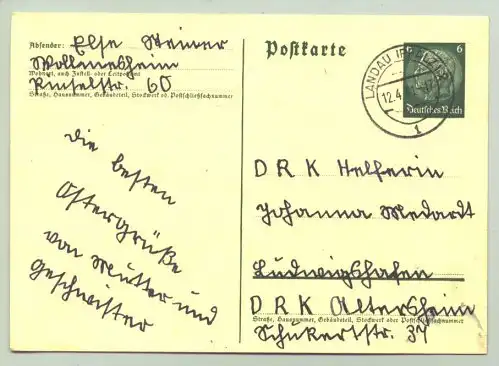 Absender: Else Steiner
Wollmesheim
Wohnort, auch Zustell- oder Leitpostamt
60
Straße, Hausnummer, Gebäudeteil, Stockwerk od. Postschließfachnummer
Die besten
Ostergrüße
von Mutter und
Geschwister
Postkarte
6 6
Deutsches Reich
LANDAU
12.4.
1
DRK Helferin
Johanna Medardt
Ludwigshafen
DRK Altersheim
Straße, Hausnummer, Gebäudeteil, Stockwerk oder Postschließfachnummer
Schukertstr. 37